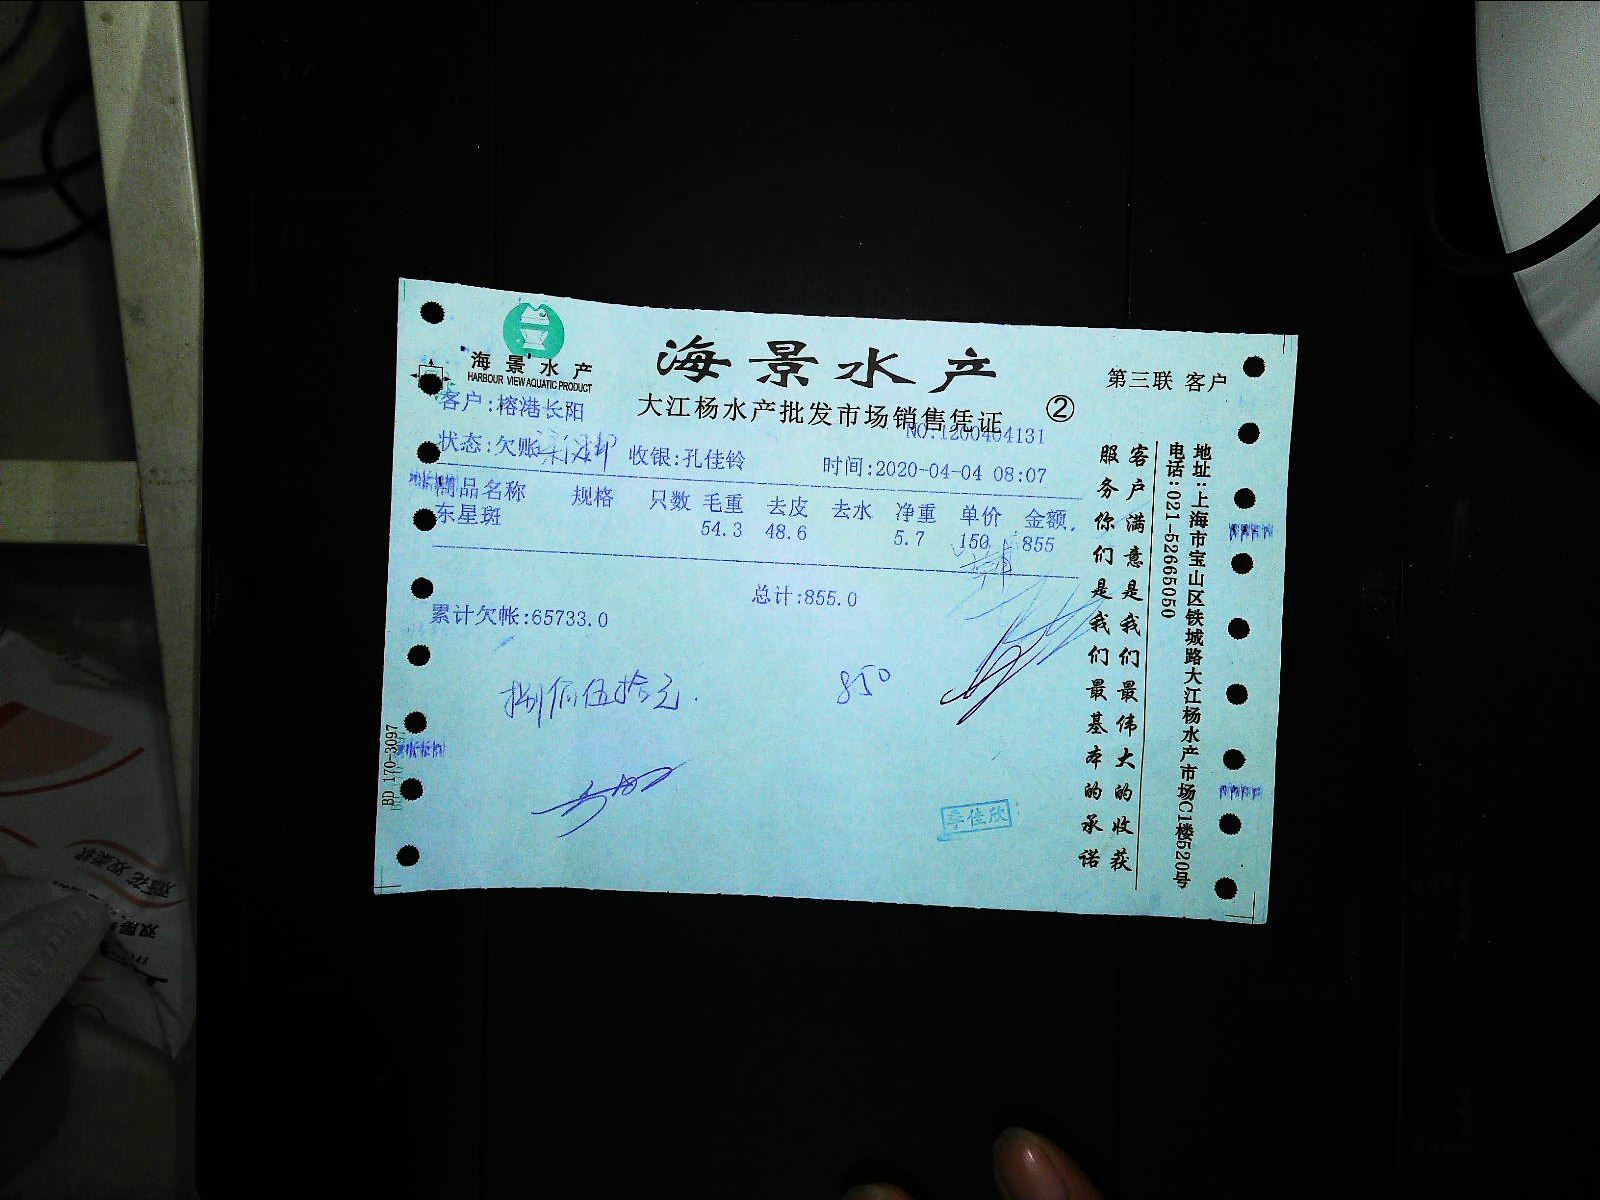 海景水产
HARBOUR VIEW AQUATIC PRODUCT
海景水产
大江杨水产批发市场销售凭证
②
第三联 客户
NO:1200404131
客户:榕港长阳
状态:欠账 收银:孔佳铃 时间:2020-04-04 08:07
商品名称 规格 只数 毛重 去皮 去水 净重 单价 金额
东星斑 54.3 48.6 5.7 150 855
总计:855.0
累计欠帐:65733.0
捌佰伍拾元. 850
李佳欣
BD 170-3097
客户满意是我们最伟大的收获
服务你们是我们最基本的承诺
地址:上海市宝山区铁城路大江杨水产市场C1楼520号
电话:021-52665050